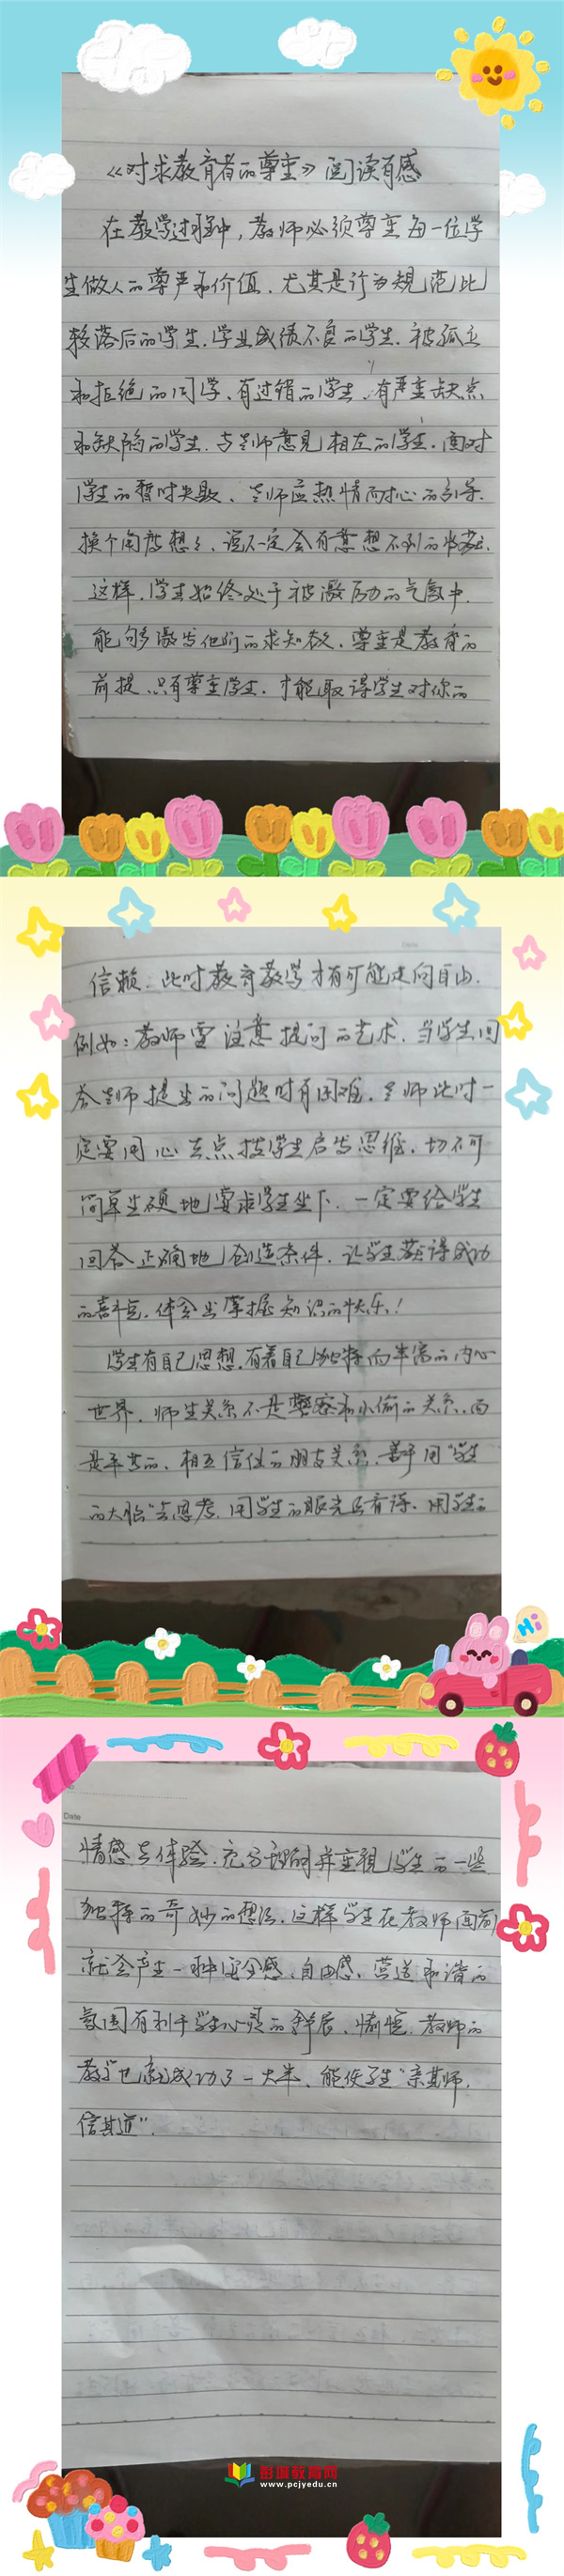 《对求教育者的尊重》阅读有感
在教学过程中，教师必须尊重每一位学
生做人的尊严和价值．尤其是行为规范比
较落后的学生．学业成绩不良的学生．被孤立
和拒绝的同学、有过错的学生，有严重缺点
和缺陷的学生．与老师意见相左的学生．面对
学生的暂时失败、老师应热情而耐心的引导．
换个角度想想、说不一定会有意想不到的收获．
这样．学生始终处于被激励的气氛中．
能够激发他们的求知欲．尊重是教育的
前提．只有尊重学生．才能取得学生对你的
Date
信赖．此时教育教学才有可能走向自由．
例如：教师需注意提问的艺术．当学生回
答老师提出的问题时有困难．老师此时一
定要用心去点拨学生启发思维．切不可
简单生硬地要求学生坐下．一定要给学生
回答正确地创造条件．让学生获得成功
的喜悦．体会出掌握知识的快乐！
学生有自己思想．有着自己独特而丰富的内心
世界．师生关系不是警察和小偷的关系．而
是平等的．相互信任的朋友关系．善于用“学生
的大脑”去思考．用学生的眼光去看待．用学生的
Hi
Date
情感去体验．充分理解并重视学生的一些
独特的奇妙的想法．这样学生在教师面前
就会产生一种安全感、自由感．营造和谐的
氛围有利于学生心灵的舒展、愉悦．教师的
教学也就成功了一大半、能使学生“亲其师．
信其道”．
彭城教育网
www.pcjyedu.cn